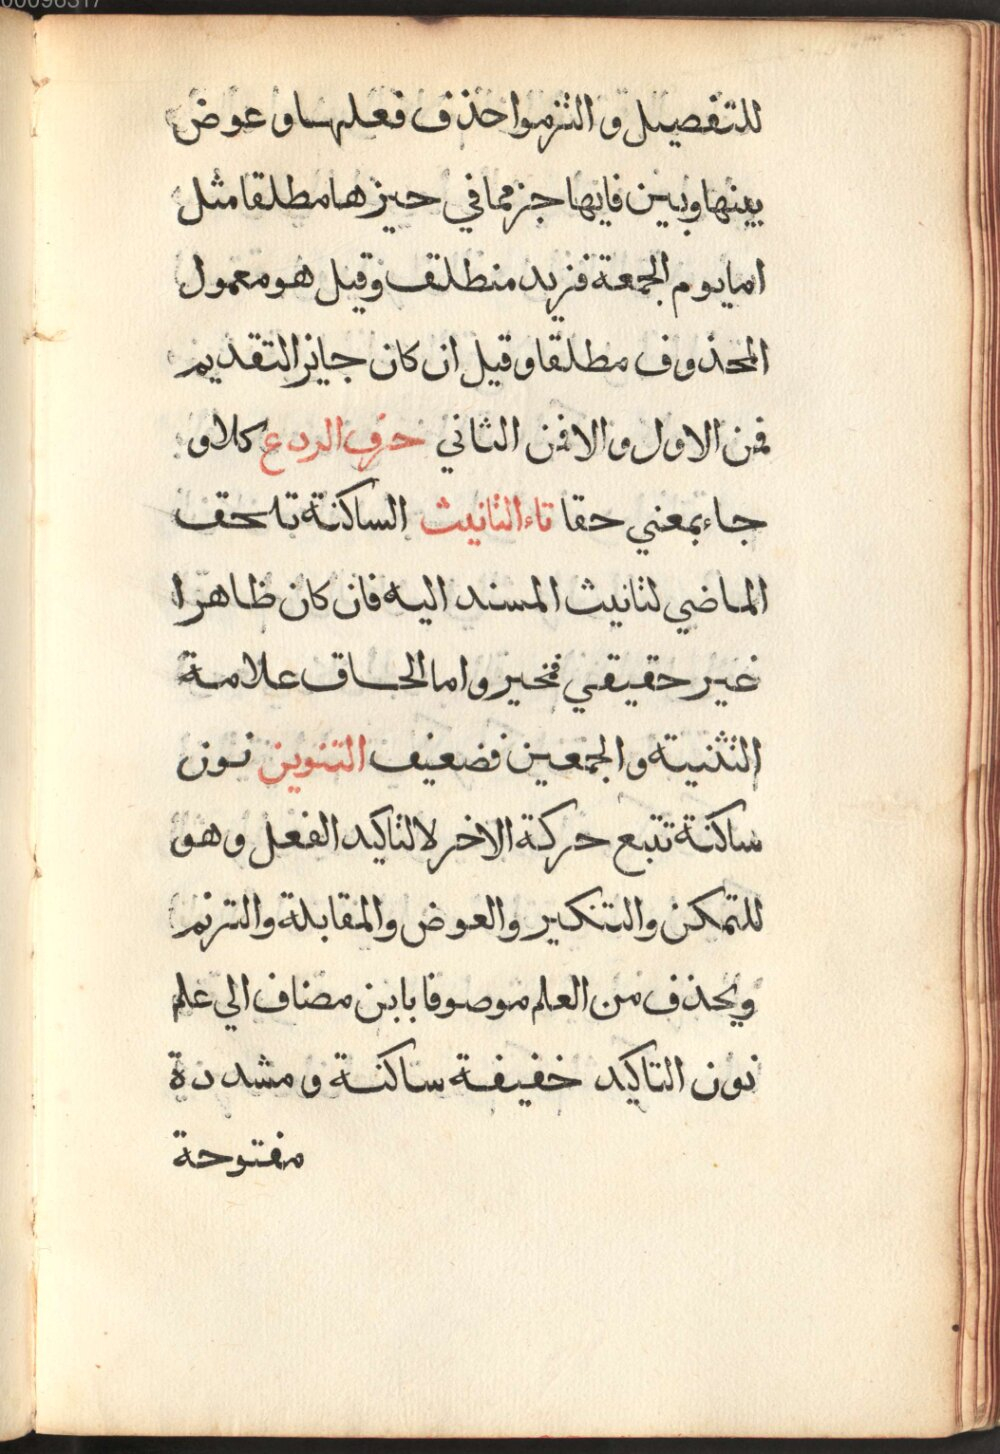 00096317
للتفصيل و التزموا حذف فعلها و عوض
بينها وبين فايها جز مما في حيزها مطلقا مثل
اما يوم الجمعة فزيد منطلق وقيل هو معمول
المحذوف مطلقا وقيل ان كان جايز التقديم
فمن الاول و الا فمن الثاني حرف الردع كلا و
جاء بمعني حقا تاء التانيث الساكنة تلحق
الماضي لتانيث المسند اليه فان كان ظاهرا
غير حقيقي فمخير واما الحاق علامة
التثنية و الجمعين فضعيف التنوين نون
ساكنة تتبع حركة الاخر لا لتاكيد الفعل وهو
للتمكن والتنكير والعوض والمقابلة والترنم
ويحذف من العلم موصوفا بابن مضاف الي علم
نون التاكيد خفيفة ساكنة و مشددة
مفتوحة